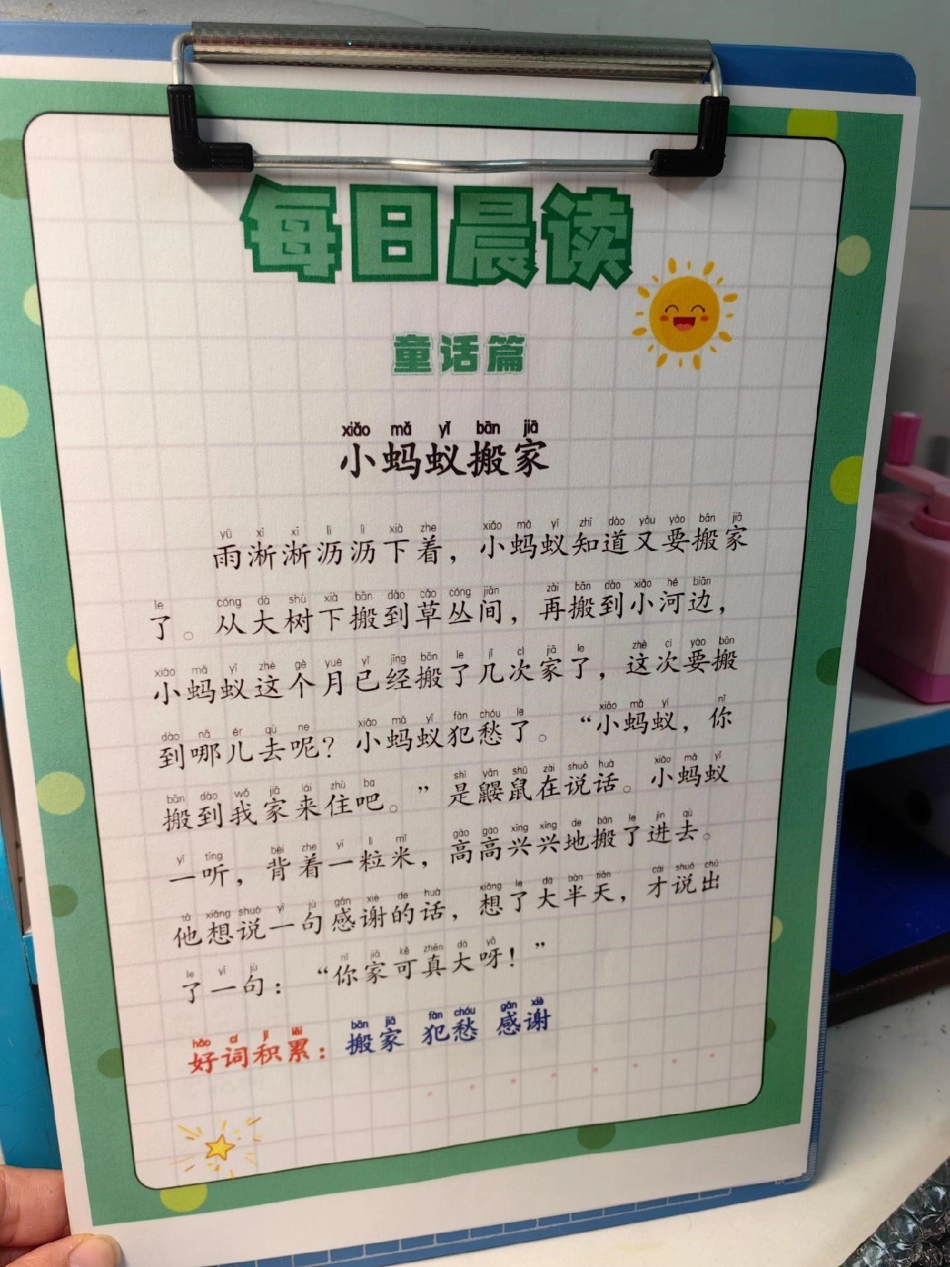 每日晨读
童话篇
xiǎo mǎ yǐ bān jiā
小蚂蚁搬家
yǔ xī xī lì lì xià zhe xiǎo mǎ yǐ zhī dào yòu yào bān jiā
雨淅淅沥沥下着，小蚂蚁知道又要搬家
le cóng dà shù xià bān dào cǎo cóng jiān zài bān dào xiǎo hé biān
了。从大树下搬到草丛间，再搬到小河边，
xiǎo mǎ yǐ zhè gè yuè yǐ jīng bān le jǐ cì jiā le zhè cì yào bān
小蚂蚁这个月已经搬了几次家了，这次要搬
dào nǎ ér qù ne xiǎo mǎ yǐ fàn chóu le xiǎo mǎ yǐ nǐ
到哪儿去呢？小蚂蚁犯愁了。“小蚂蚁，你
bān dào wǒ jiā lái zhù ba shì yǎn shǔ zài shuō huà xiǎo mǎ yǐ
搬到我家来住吧。”是鼹鼠在说话。小蚂蚁
yī tīng bēi zhe yí lì mǐ gāo gāo xìng xìng de bān le jìn qù
一听，背着一粒米，高高兴兴地搬了进去。
tā xiǎng shuō yī jù gǎn xiè de huà xiǎng le dà bàn tiān cái shuō chū
他想说一句感谢的话，想了大半天，才说出
le yī jù nǐ jiā kě zhēn dà yā
了一句：“你家可真大呀！”
hǎo cí jī lěi bān jiā fàn chóu gǎn xiè
好词积累：搬家 犯愁 感谢